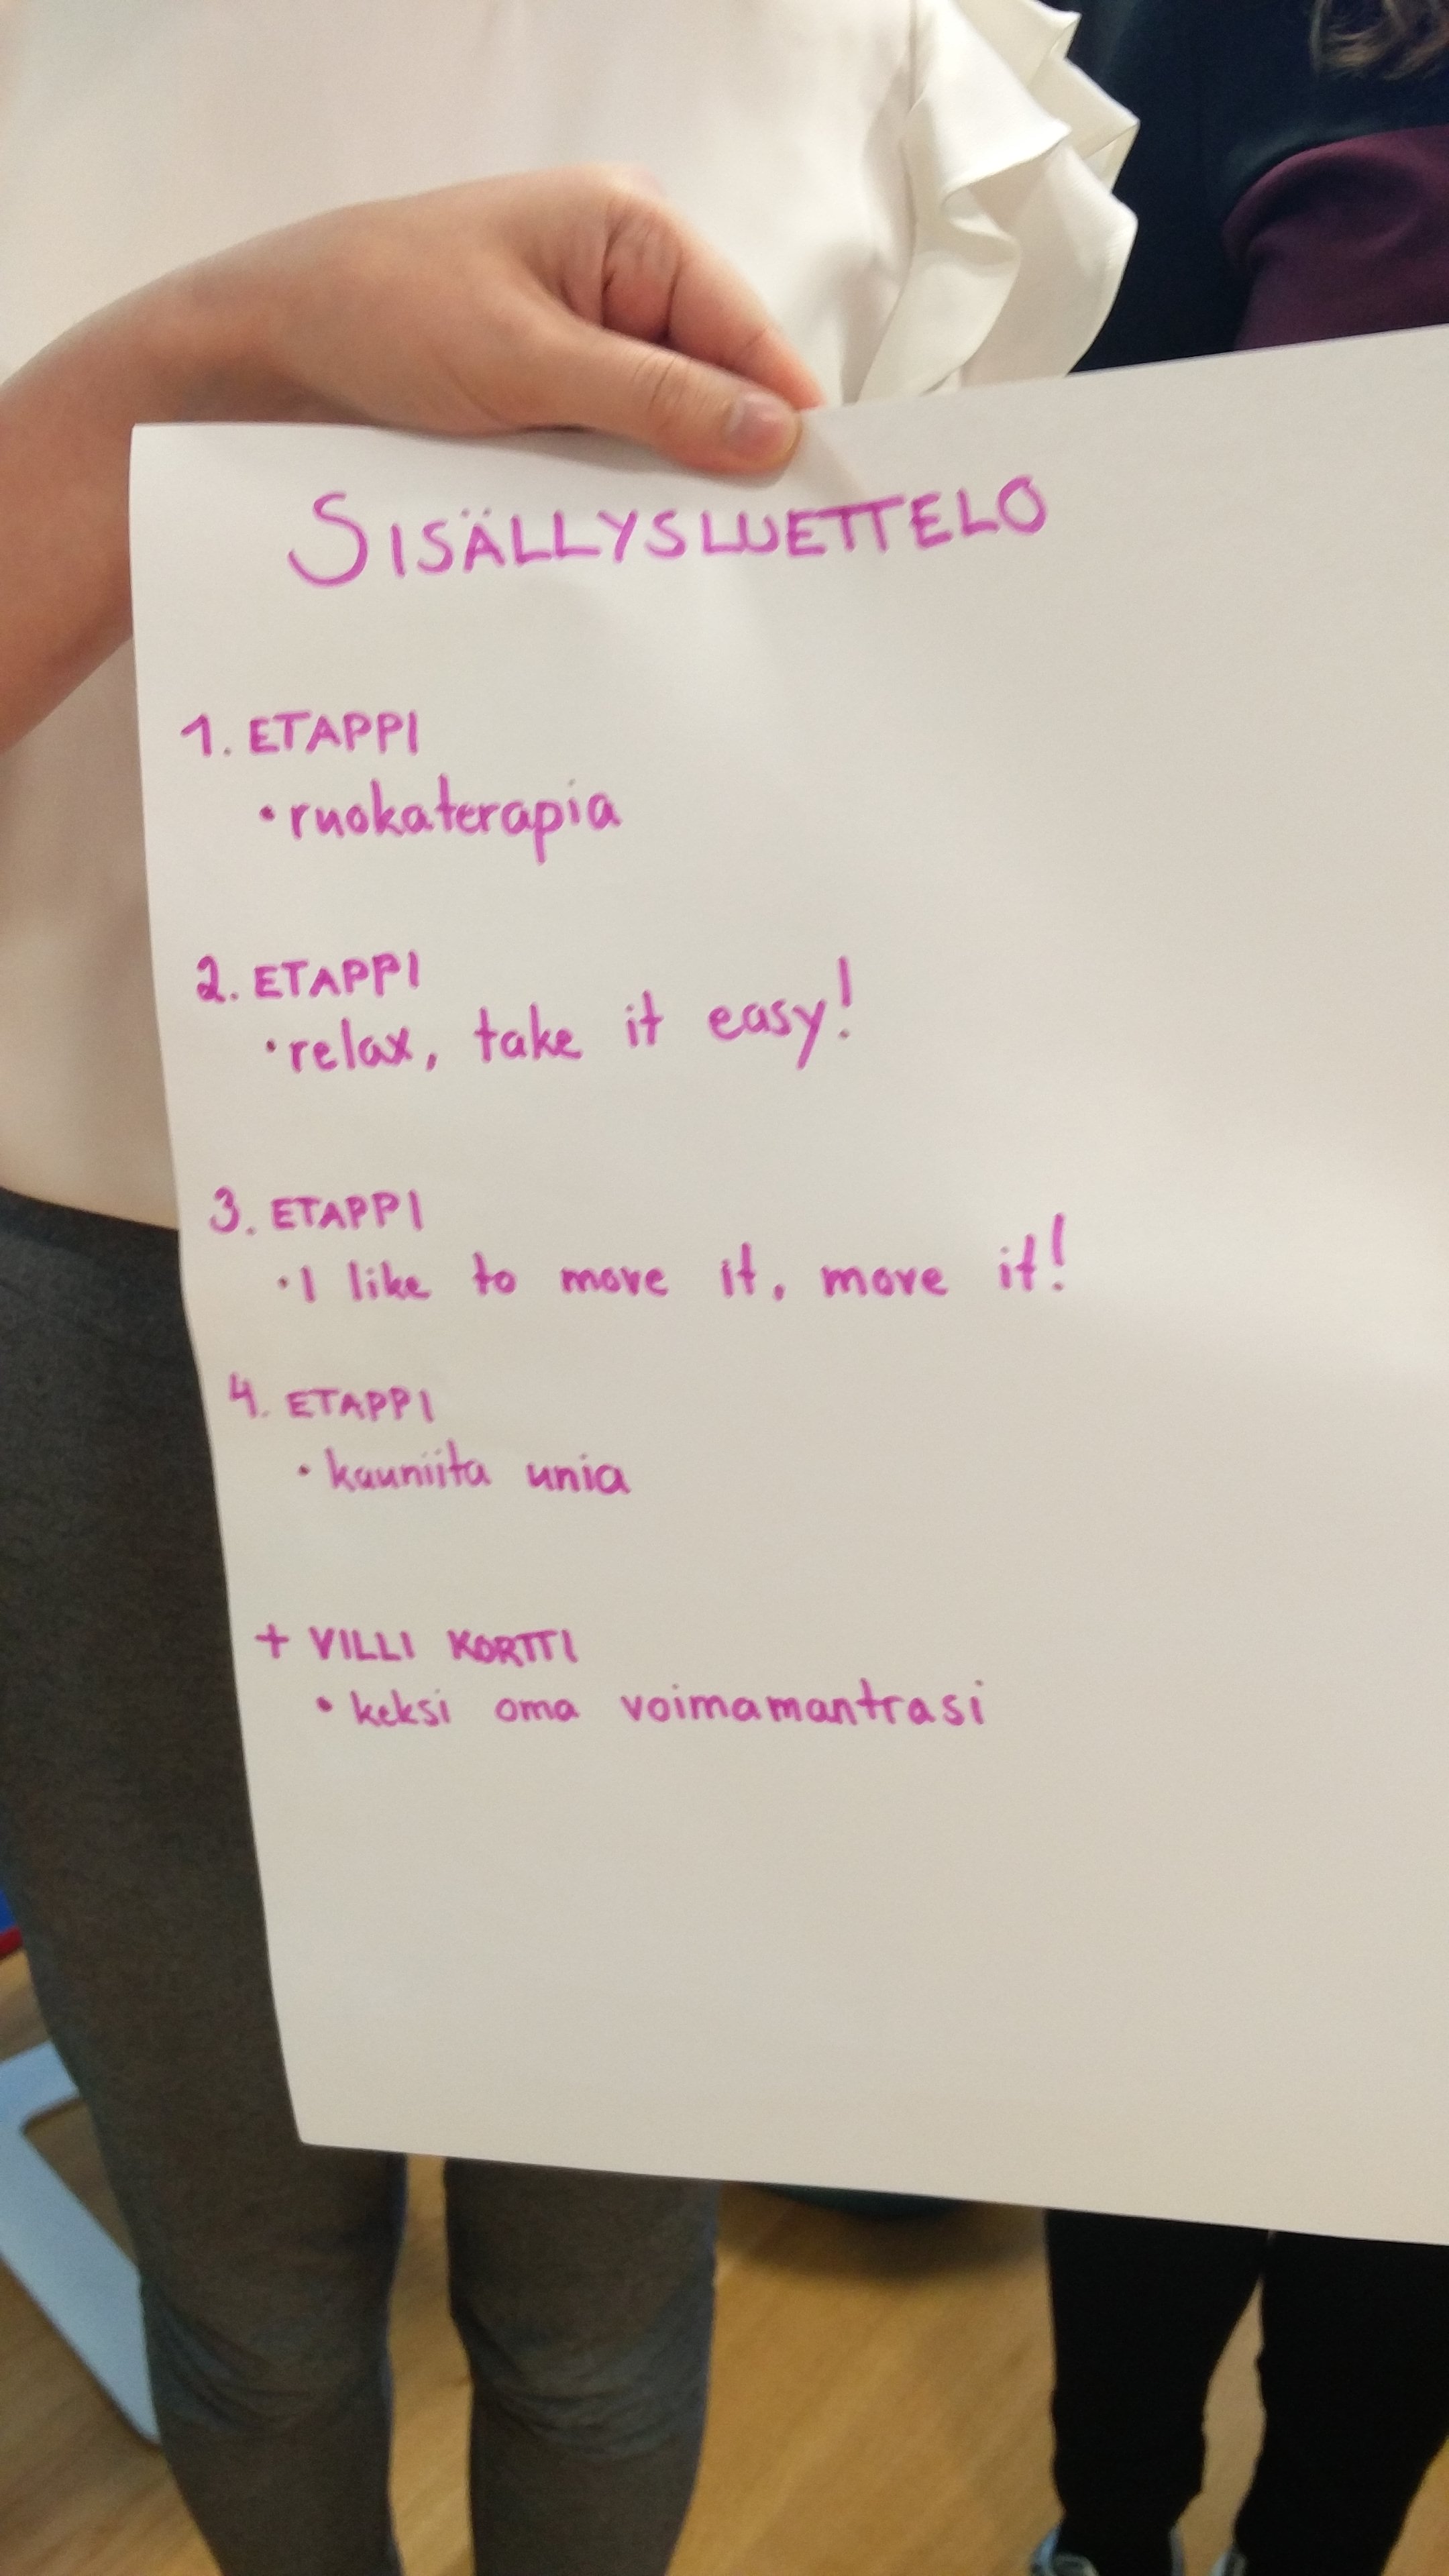 SISÄLLYSLUETTELO
1. ETAPPI
• ruokaterapia
2. ETAPPI
• relax, take it easy!
3. ETAPPI
• I like to move it, move it!
4. ETAPPI
• kauniita unia
+ VILLI KORTTI
• keksi oma voimamantrasi